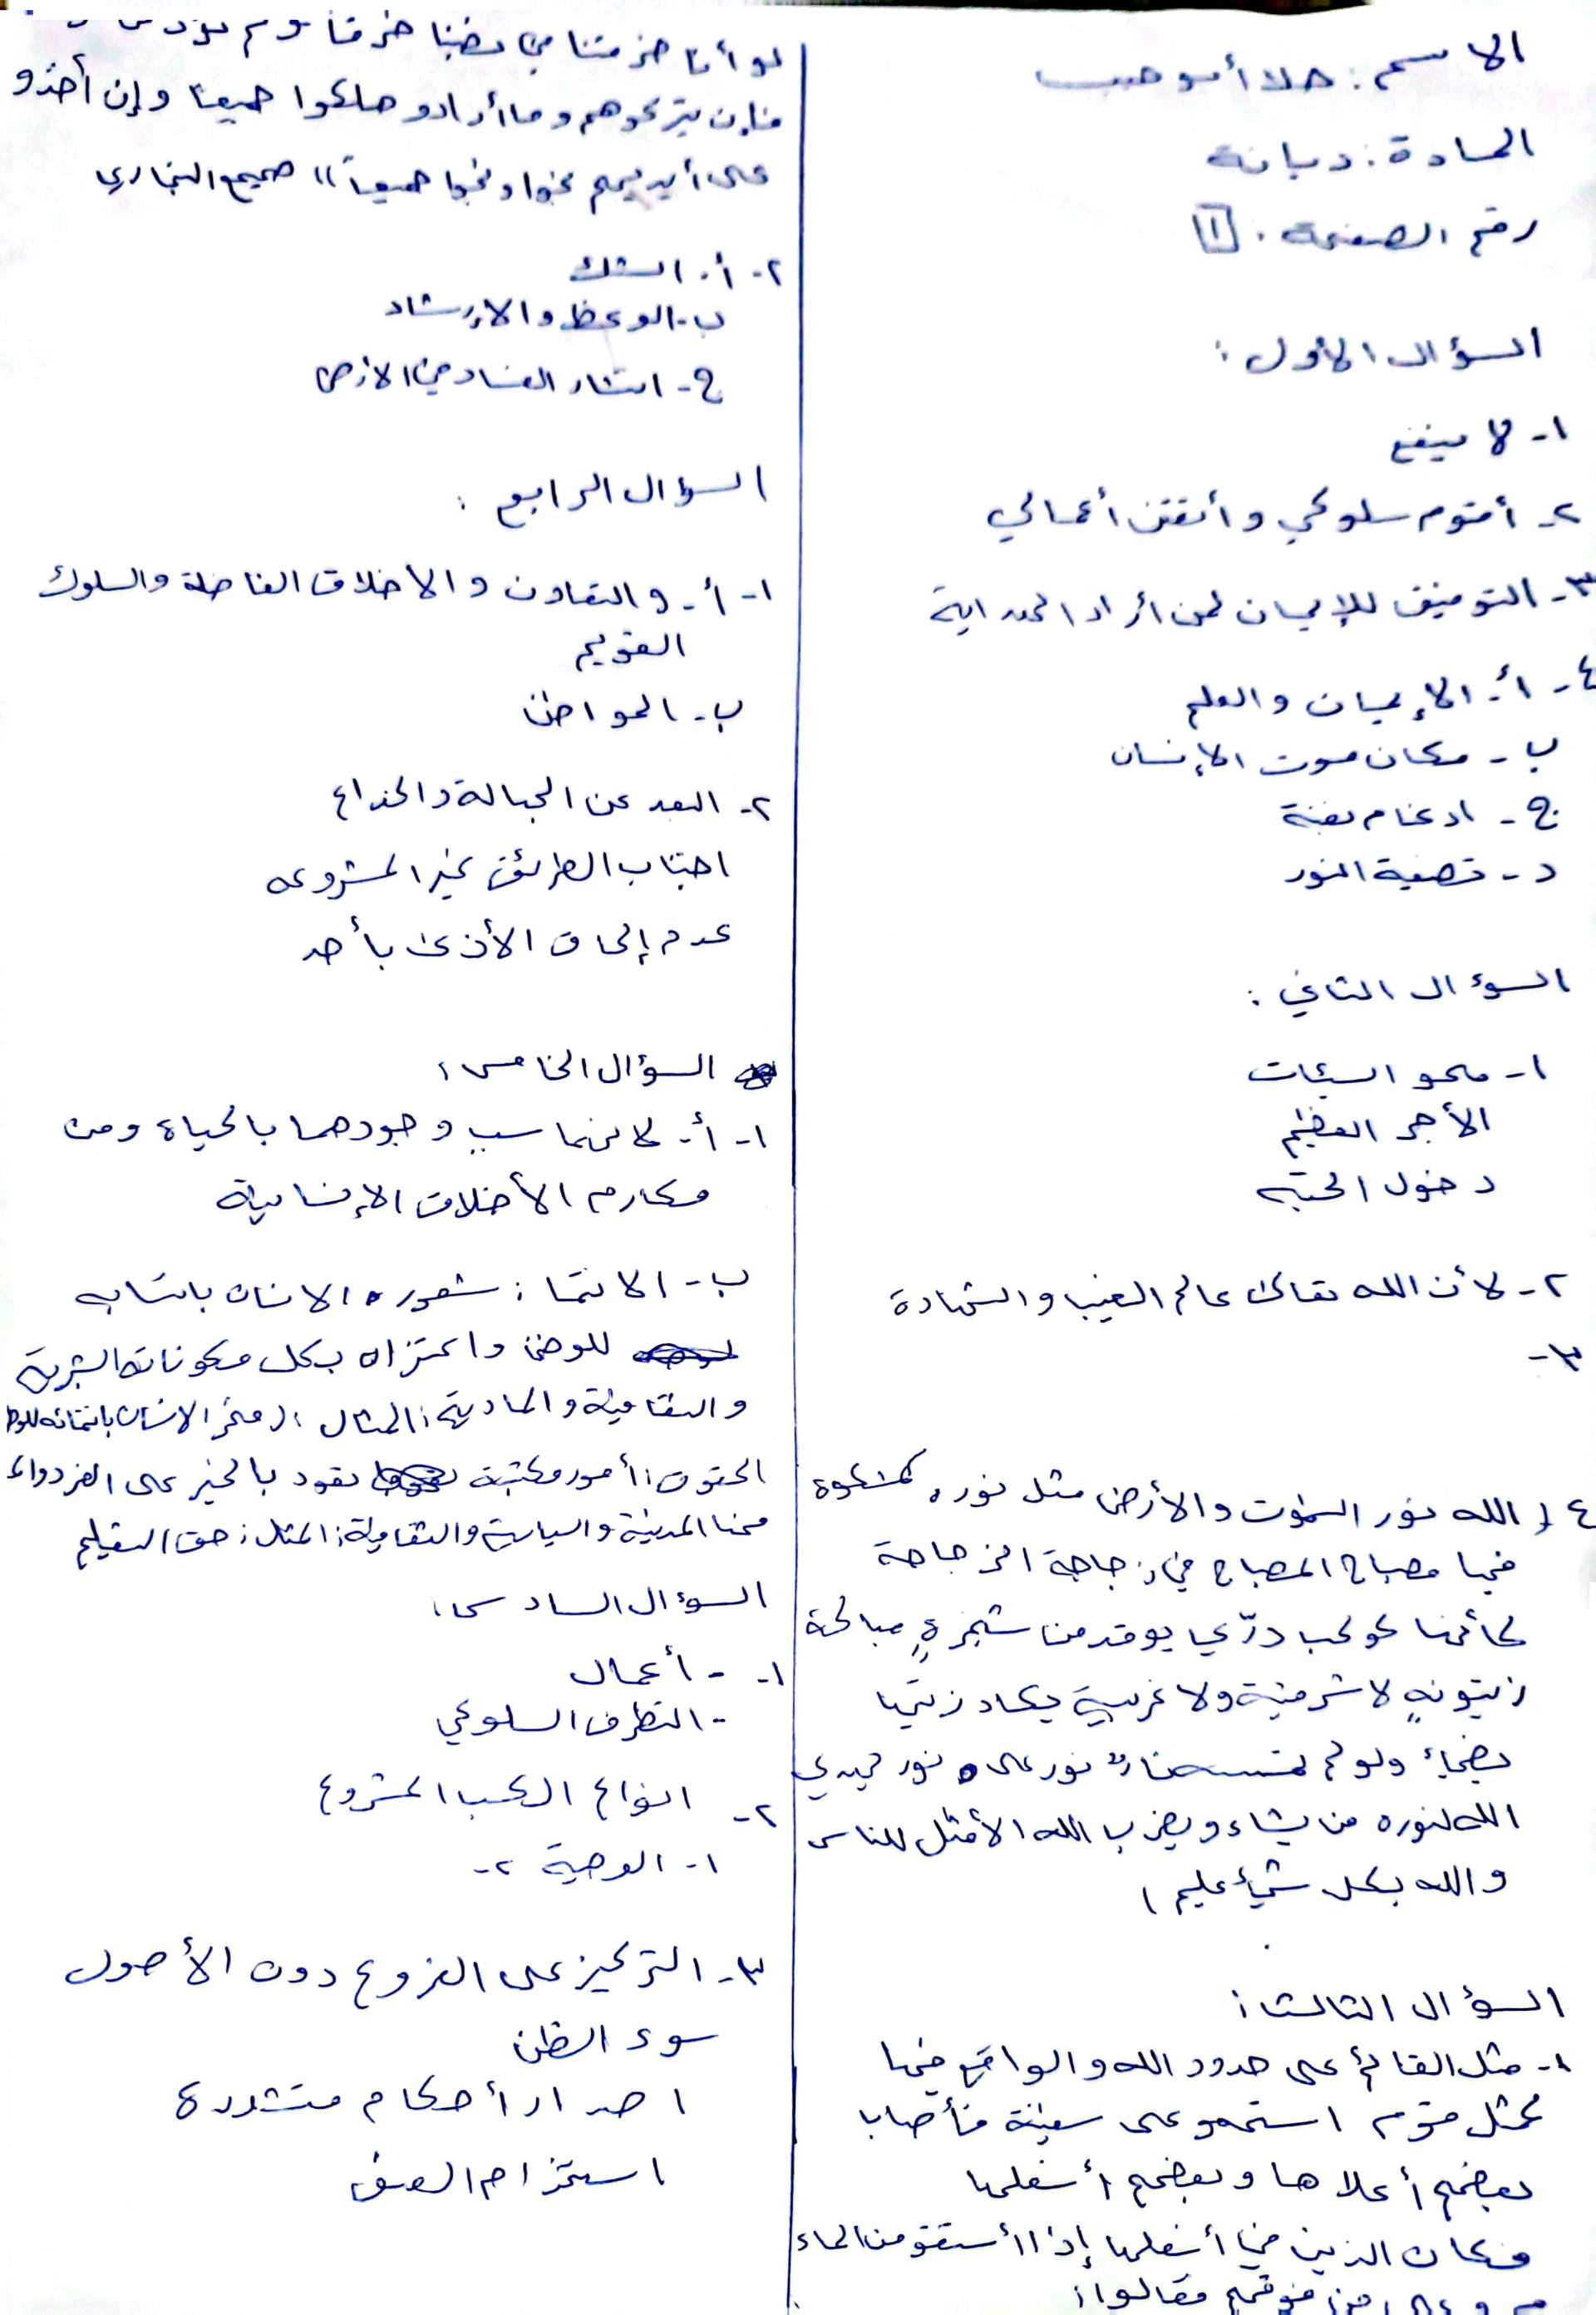 الاسم: حلا أبو حسب
المادة: ديانة
رقم الصفحة: ١
السؤال الأول:
١- لا ينفع
٢- أقوم سلوكي وأتقن أعمالي
٣- التوفيق للإيمان لمن أراد الهداية
٤- أ- الإيمان والعلم
ب- مكان موت الإنسان
ج- ادغام بغنة
د- قضية النور
السوء ال الثاني:
١- محو السيئات
الأجر العظيم
دخول الجنه
٢- لأن الله تعالى عالم الغيب والشهادة
٣-
٤ ( الله نور السموت والأرض مثل نوره كمشكوة
فيها مصباح المصباح في زجاجة الزجاجة
كأنها كوكب درّي يوقد من شجرةٍ مباركة
زيتونهٍ لا شرقية ولا غربية يكاد زيتها
يضيئ ولو لم تمسسه نارٌ نور على نور يهدي
الله لنوره من يشاء ويضرب الله الأمثل للناس
والله بكل شيئ عليم )
السؤال الثالث:
١- مثل القائم على حدود الله والواقع فيها
كمثل قوم استهمو على سفينة فأصاب
بعضهم أعلاها وبعضهم أسفلها
فكان الذين في أسفلها إذا أستقو من الماء
من فوقهم فقالوا:
لو أنا خرقنا في نصيبنا خرقا ولم نؤذ من
فإن يتركوهم وما أرادو هلكوا جميعا وإن أخذو
على أيديهم نجوا ونجوا جميعاً" صحيح البخاري
٢- أ. الشك
ب- الوعظ والإرشاد
ج- انتشار الفساد في الأرض
السوال الرابع:
١- أ- و التعاون والاخلاق الفاضلة والسلوك
القويم
ب- المواطن
٢- البعد عن الجهالة والخداع
اجتناب الطرائق غير المشروعه
عدم إلحاق الأذى بأحد
السؤال الخامس:
١- أ- لانهما سبب وجودهما بالحياة ومن
مكارم الأخلاق الإنسانية
ب- الانتما: شعور الانسان بانتسابه
للوطن واعتزاه بكل مكوناته البشرية
والثقافية والمادية: المثال: فخر الانسان بانتمائه للوطن
الحقوق: أمور مكتسبة تعود بالخير على الفرد
منها المدنية والسياسية والثقافية: المثل: حق التعليم
السوء ال السادس:
١- - أعمال
- التطرف السلوكي
٢- انواع الكسب المشروع
١- الوصية ٢-
٣- التركيز على الفروع دون الأصول
سوء الظن
اصدار أحكام متشددة
استخدام العنف